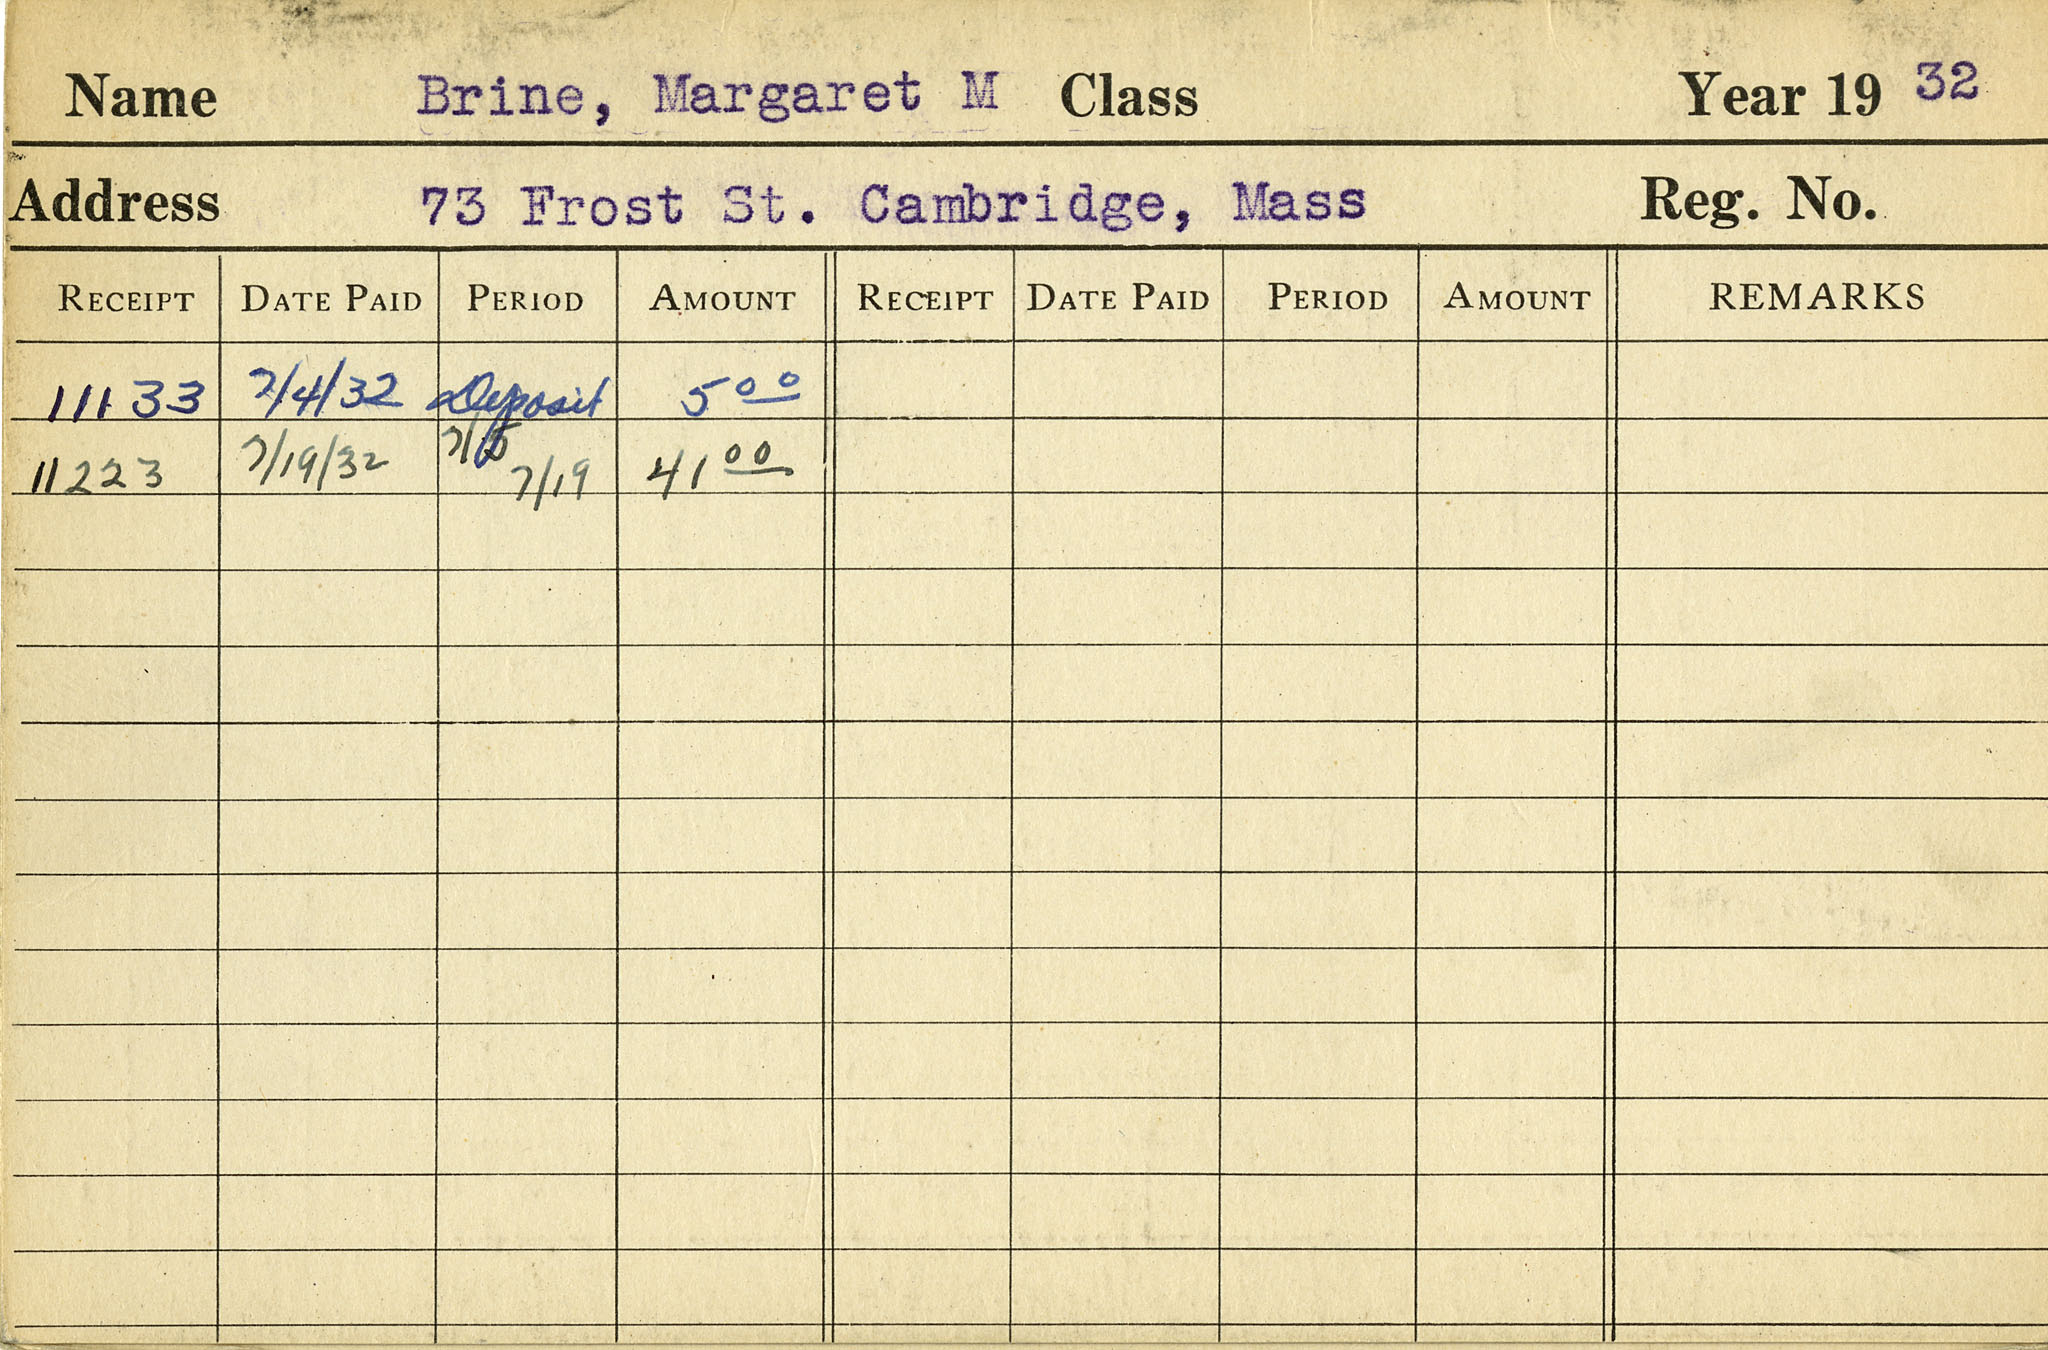 Name Brine, Margaret M Class Year 19 32
Address 73 Frost St. Cambridge, Mass Reg. No.
RECEIPT DATE PAID PERIOD AMOUNT RECEIPT DATE PAID PERIOD AMOUNT REMARKS
11133 7/4/32 Deposit 5 00
11223 7/19/32 7/15 7/19 41 00